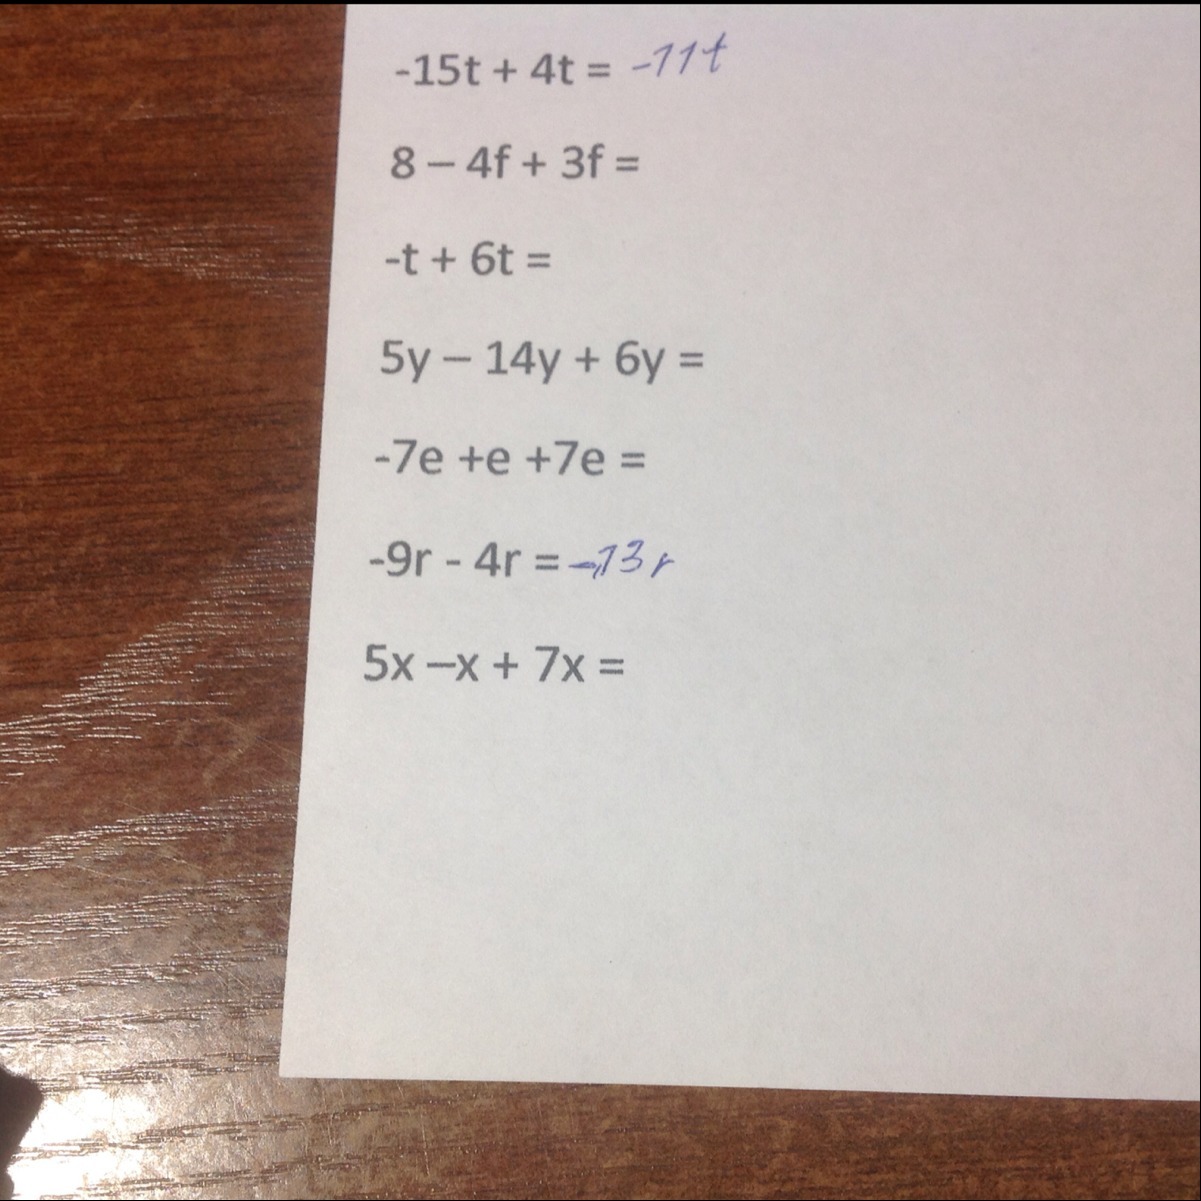 -15t + 4t = -11t
8 – 4f + 3f =
-t + 6t =
5y – 14y + 6y =
-7e +e +7e =
-9r - 4r = -13r
5x –x + 7x =